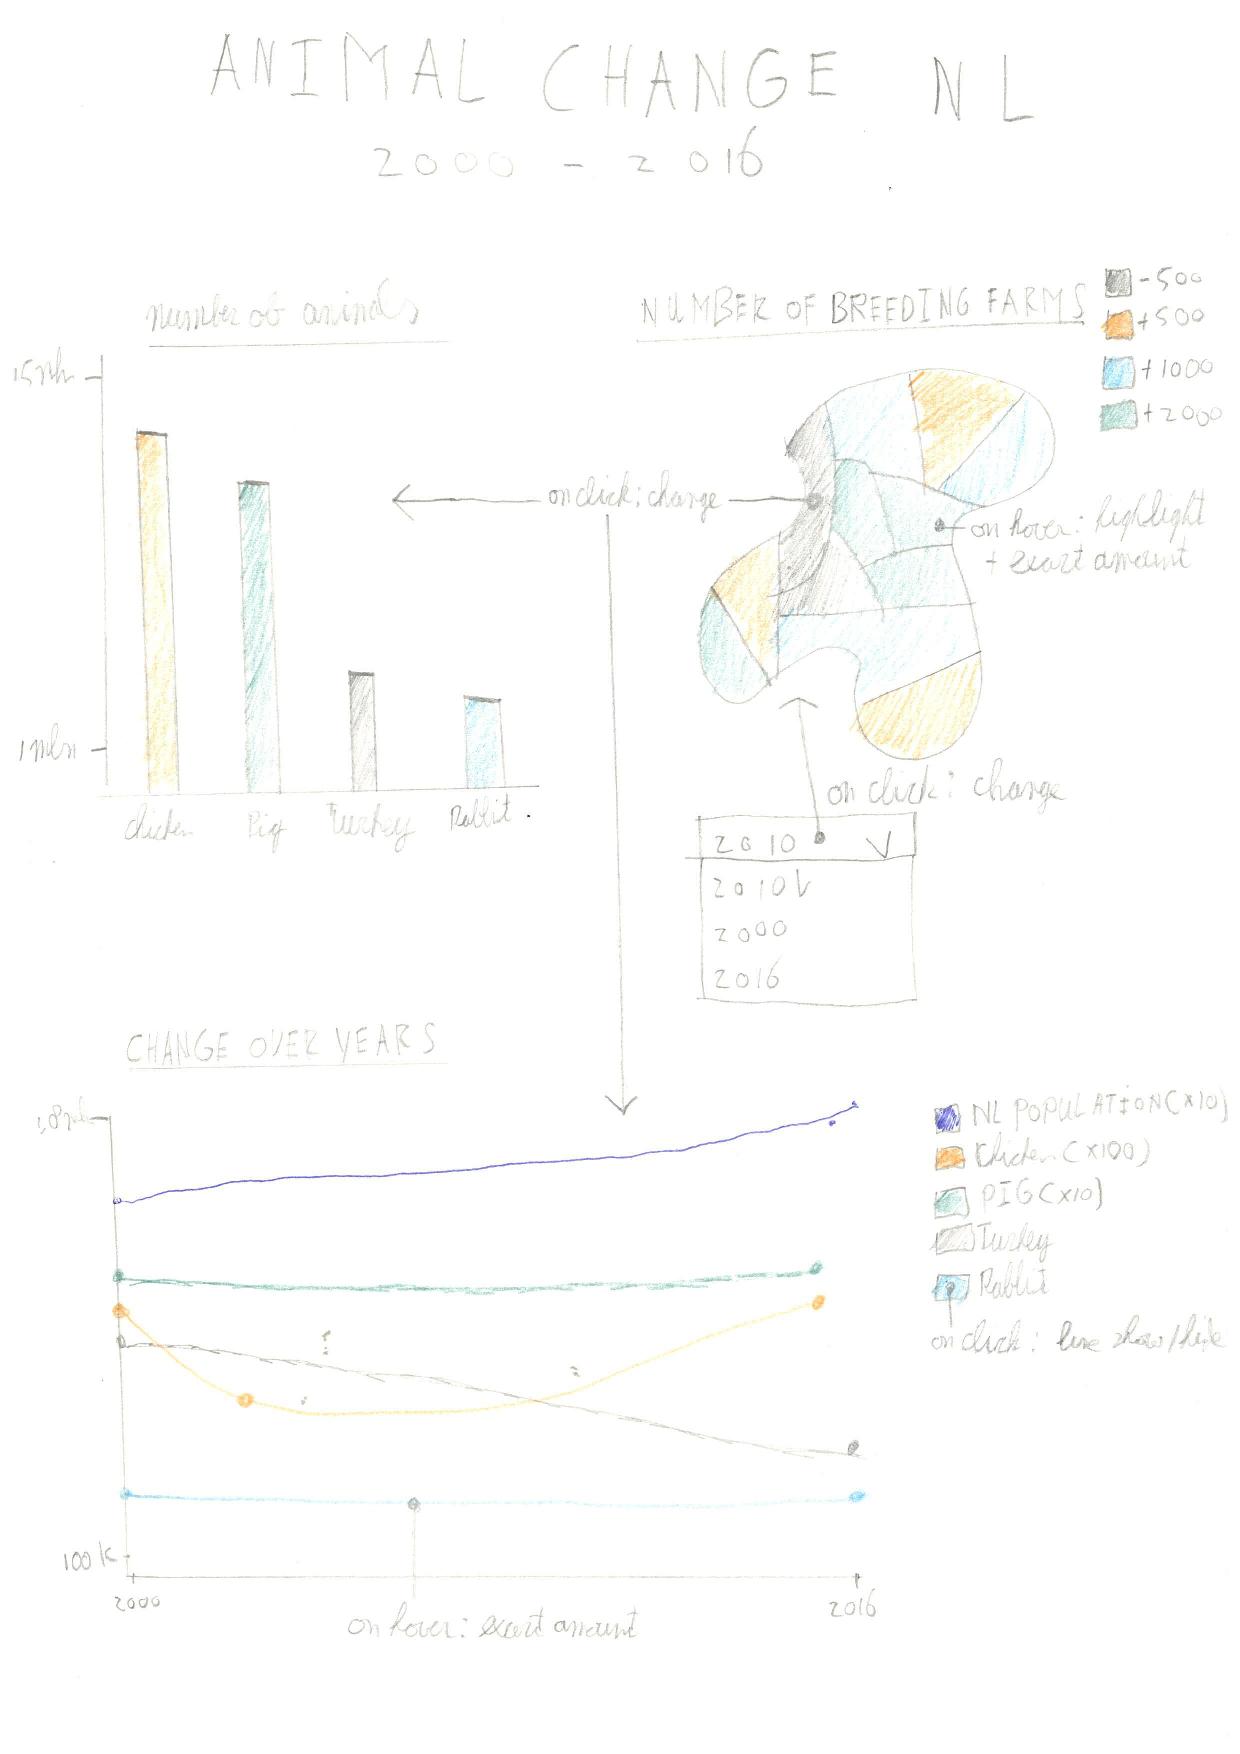 ANIMAL CHANGE NL
2000 - 2016
number of animals
15 mln
1 mln
chicken
Pig
Turkey
Rabbit
NUMBER OF BREEDING FARMS
-500
+500
+1000
+2000
on click: change
on hover: highlight
+ exact amount
on click: change
2010 V
2010 V
2000
2016
CHANGE OVER YEARS
1,8 mln
100 K
2000
2016
on hover: exact amount
NL POPULATION (x10)
Chicken (x100)
PIG (x10)
Turkey
Rabbit
on click: line show/hide